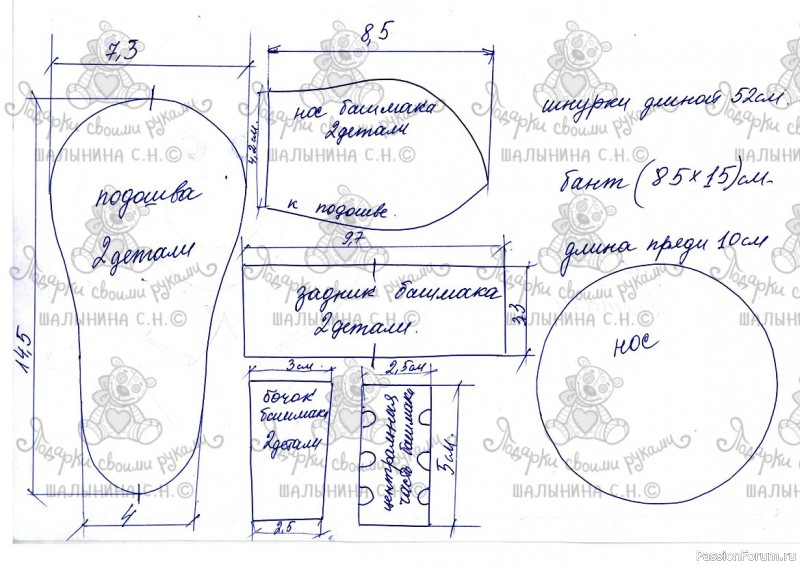 7,3
14,5
подошва
2детали
4
8,5
4,2см.
нос башмака
2детали
к подошве.
9,7
задник башмака
2детали.
3,3
3см
бочок
башмака
2детали
2,5
2,5см
центральная
часть башмака
5см.
шнурки длиной 52см.
бант (85×15)см.
длина пряди 10см
нос
Подарки своими руками
ШАЛЫНИНА С.Н.©
PassionForum.ru